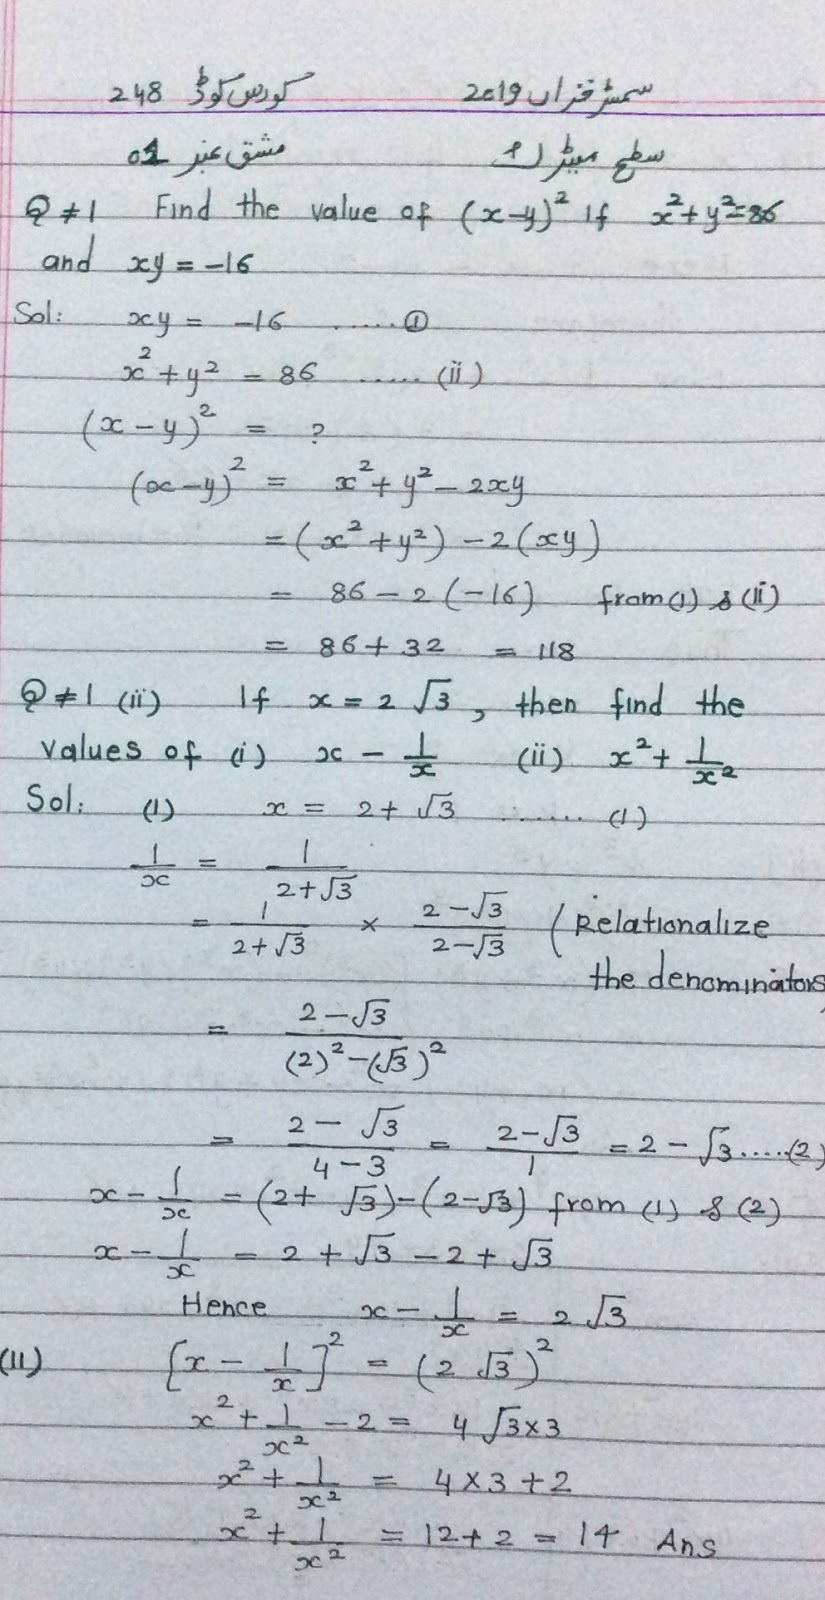 سمسٹر خزاں 2019 کورس کوڈ 248
سطح میٹرک مشق نمبر 01
Q≠1 Find the value of (x-y)² if x²+y²=86
and xy = -16
Sol: xy = -16 ...... ①
x² + y² = 86 ...... (ii)
(x - y)² = ?
(x-y)² = x² + y² - 2xy
= (x² + y²) - 2(xy)
= 86 - 2(-16) from (1) & (ii)
= 86 + 32 = 118
Q≠1 (ii) If x = 2 √3, then find the
values of (i) x - 1/x (ii) x² + 1/x²
Sol: (1) x = 2 + √3 ....... (1)
1/x = 1/(2+√3)
= 1/(2+√3) × (2-√3)/(2-√3) (Relationalize
the denominators
= (2-√3)/((2)²-(√3)²)
= (2-√3)/(4-3) = (2-√3)/1 = 2 - √3 .....(2)
x - 1/x = (2+ √3)-(2-√3) from (1) & (2)
x - 1/x = 2 + √3 - 2 + √3
Hence x - 1/x = 2 √3
(11) [x - 1/x]² = (2 √3)²
x² + 1/x² - 2 = 4 √3×3
x² + 1/x² = 4 × 3 + 2
x² + 1/x² = 12 + 2 = 14 Ans